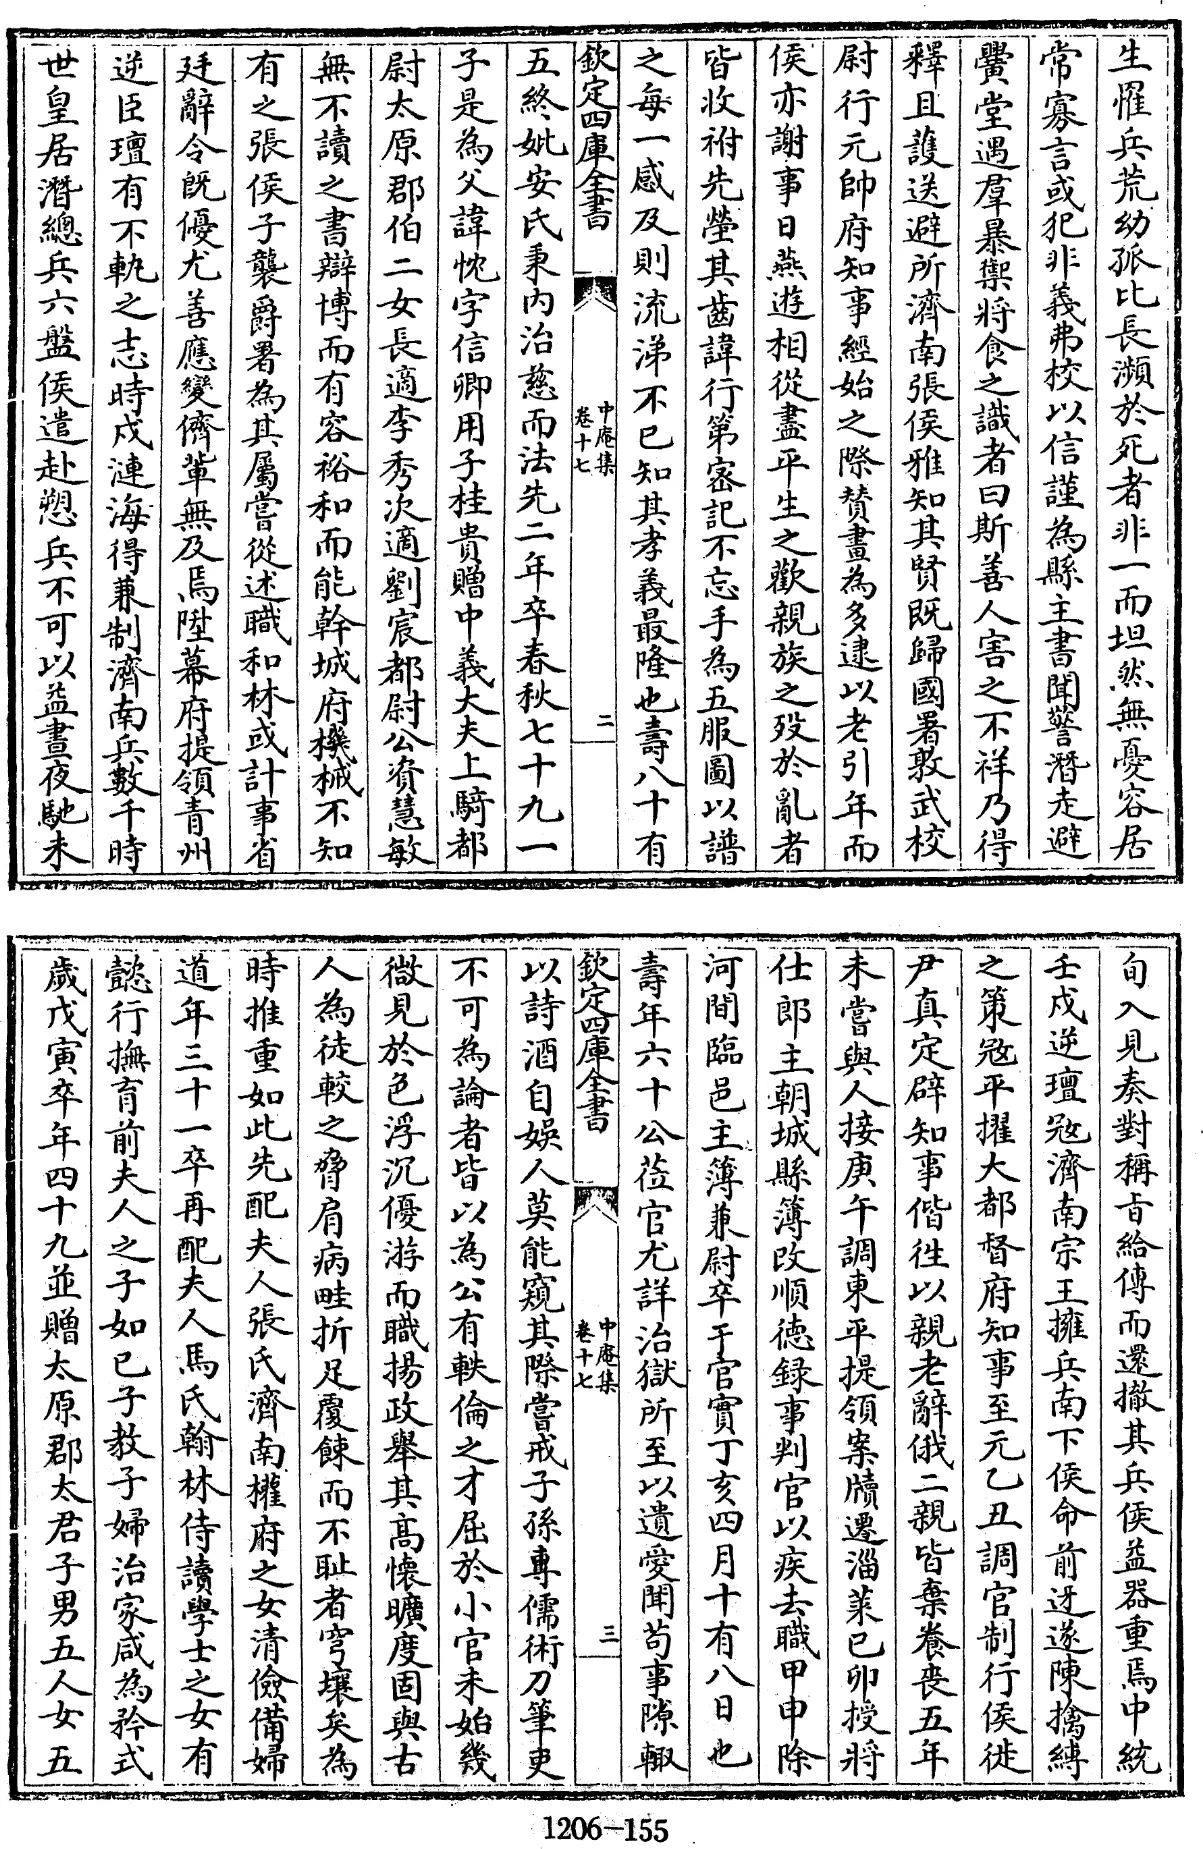 生罹兵荒幼孤比長瀕於死者非一而坦然無憂容居
常寡言或犯非義弗校以信謹為縣主書聞警潛走避
黌堂遇羣暴禦將食之識者曰斯善人害之不祥乃得
釋且護送避所濟南張侯雅知其賢既歸國署敦武校
尉行元帥府知事經始之際贊畫為多逮以老引年而
侯亦謝事日燕遊相從盡平生之歡親族之歿於亂者
皆收祔先塋其齒諱行第宻記不忘手為五服圖以譜
之每一感及則流涕不已知其孝義最隆也壽八十有
欽定四庫全書
中庵集
卷十七
二
五終妣安氏秉内治慈而法先二年卒春秋七十九一
子是為父諱忱字信卿用子桂貴贈中義大夫上騎都
尉太原郡伯二女長適李秀次適劉宸都尉公資慧敏
無不讀之書辯博而有容裕和而能幹城府機械不知
有之張侯子襲爵署為其屬嘗從述職和林或計事省
廷辭令既優尤善應變儕輩無及焉陞幕府提領青州
逆臣璮有不軌之志時戍漣海得兼制濟南兵數千時
世皇居潛總兵六盤侯遣赴愬兵不可以益晝夜馳未
旬入見奏對稱㫖給傳而還撤其兵侯益器重焉中統
壬戌逆璮㓂濟南宗王擁兵南下侯命前迓遂陳擒縛
之策㓂平擢大都督府知事至元乙丑調官制行侯徙
尹真定辟知事偕徃以親老辭俄二親皆棄養喪五年
未嘗與人接庚午調東平提領案牘遷淄萊己卯授將
仕郎主朝城縣簿改順德錄事判官以疾去職甲申除
河間臨邑主簿兼尉卒于官實丁亥四月十有八日也
壽年六十公莅官尤詳治獄所至以遺愛聞茍事隙輙
欽定四庫全書
中庵集
卷十七
三
以詩酒自娛人莫能窺其際嘗戒子孫專儒術刀筆吏
不可為論者皆以為公有軼倫之才屈於小官未始幾
微見於色浮沉優游而職揚政舉其高懷曠度固與古
人為徒較之脅肩病畦折足覆餗而不耻者穹壤矣為
時推重如此先配夫人張氏濟南權府之女清儉備婦
道年三十一卒再配夫人馬氏翰林侍讀學士之女有
懿行撫育前夫人之子如已子教子婦治家咸為矜式
歲戊寅卒年四十九並贈太原郡太君子男五人女五
1206-155